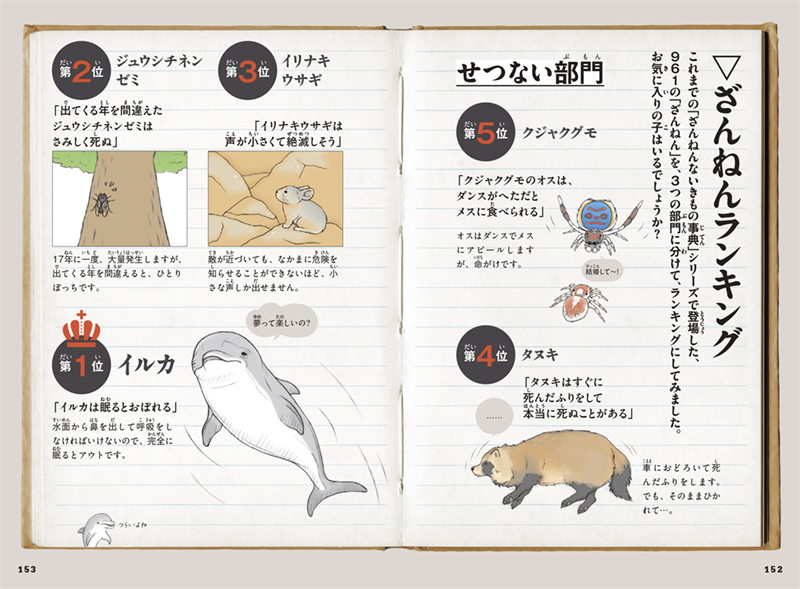 ▽ざんねんランキング
これまでの「ざんねんないきもの事典」シリーズで登場した、
961の「ざんねん」を、3つの部門に分けて、ランキングにしてみました。
お気に入りの子はいるでしょうか？
せつない部門
第5位 クジャクグモ
「クジャクグモのオスは、
ダンスがへただと
メスに食べられる」
オスはダンスでメス
にアピールします
が、命がけです。
結婚して〜！
第4位 タヌキ
「タヌキはすぐに
死んだふりをして
本当に死ぬことがある」
……
車におどろいて死
んだふりをします。
でも、そのままひか
れて…。
152
第3位 イリナキ
ウサギ
「イリナキウサギは
声が小さくて絶滅しそう」
敵が近づいても、なかまに危険を
知らせることができないほど、小
さな声しか出せません。
第2位 ジュウシチネン
ゼミ
「出てくる年を間違えた
ジュウシチネンゼミは
さみしく死ぬ」
17年に一度、大量発生しますが、
出てくる年を間違えると、ひとり
ぼっちです。
第1位 イルカ
夢って楽しいの？
「イルカは眠るとおぼれる」
水面から鼻を出して呼吸をし
なければいけないので、完全に
眠るとアウトです。
つらいよね
153